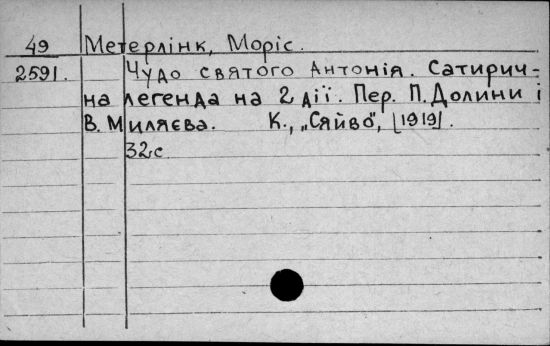 49 Метерлінк, Моріс.
2591. Чудо святого Антонія. Сатирич-
на легенда на 2 дії. Пер. П. Долини і
В. Миляєва. К., „Сяйво", [1919].
32 с.